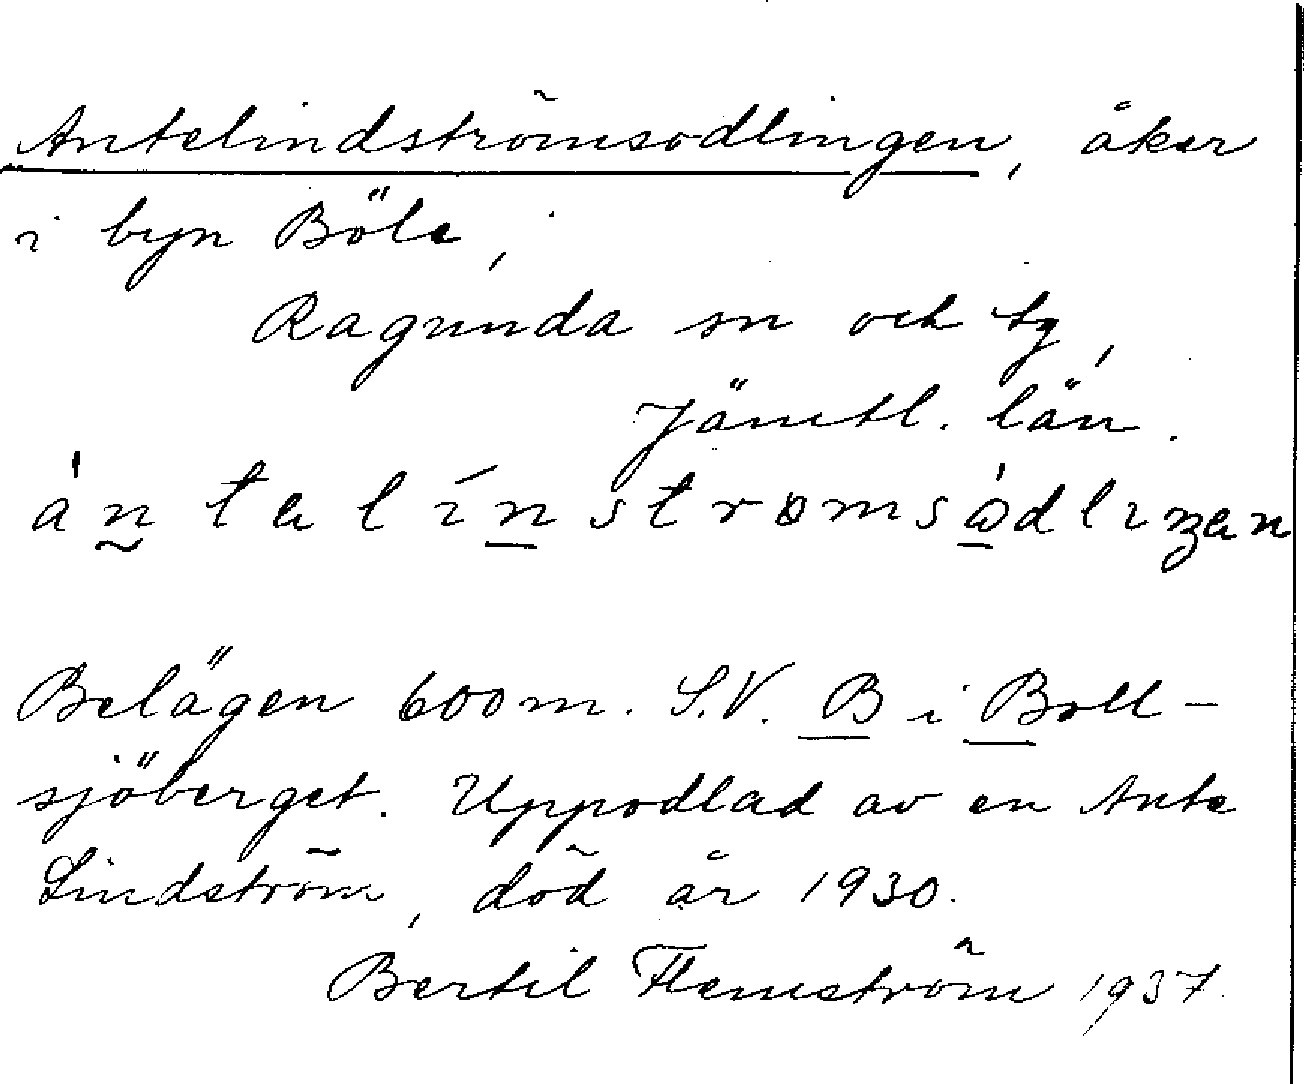 Antelindströmsodlingen, åker
i byn Böle,
Ragunda sn och tg,
Jämtl. län.
àn̰talín̲stromsòdlıŋan
Belägen 600 m. S.V. B i Boll-
sjöberget. Uppodlad av en Ante
Lindström, död år 1930.
Bertil Flemström 1937.